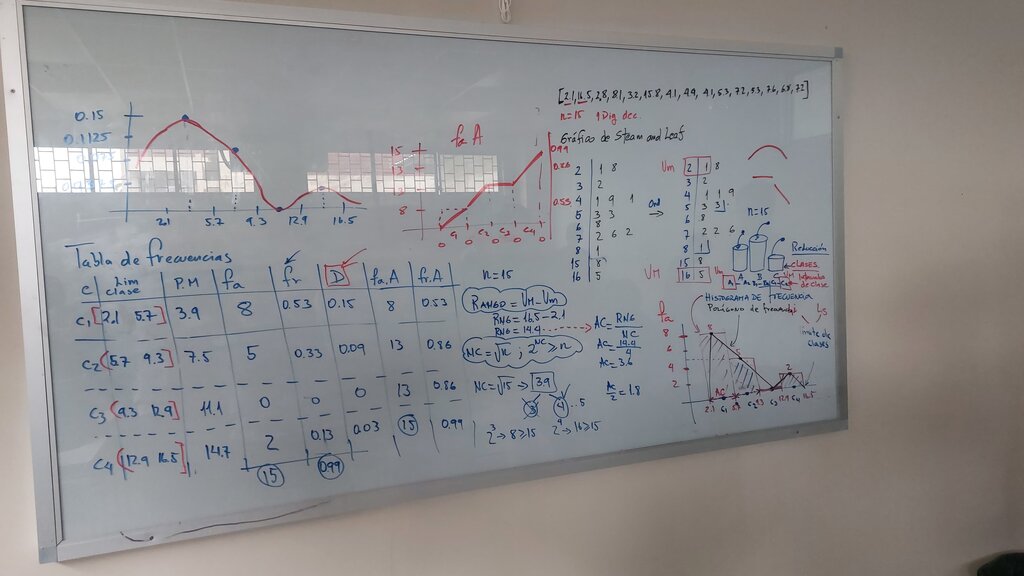 [2.1, 16.5, 2.8, 8.1, 3.2, 15.8, 4.1, 4.9, 4.1, 5.3, 7.2, 5.3, 7.6, 6.8, 7.2]
n=15 1 Dig dec.
0.15
0.1125
2.1 5.7 9.3 12.9 16.5
fa A
15
13
8
0.99
0.86
0.53
C1 C2 C3 C4
0 0 0 0 0
Gráfico de Steam and Leaf
2 | 1 8
3 | 2
4 | 1 9 1
5 | 3 3
6 | 8
7 | 2 6 2
8 | 1
15 | 8
16 | 5
Ord →
Vm 2 | 1 8
3 | 2
4 | 1 1 9
5 | 3 3
6 | 8
7 | 2 2 6
8 | 1
15 | 8
VM 16 | 5 Vm
n=15
A B C
Reducción
CLASES
VM
Intervalos de clase
Ls
límite de clases
Tabla de frecuencias
C | Lim clase | P.M | fa | fr | D | fa.A | fr.A
C1 [2.1 5.7] | 3.9 | 8 | 0.53 | 0.15 | 8 | 0.53
C2 (5.7 9.3] | 7.5 | 5 | 0.33 | 0.09 | 13 | 0.86
C3 (9.3 12.9] | 11.1 | 0 | 0 | 0 | 13 | 0.86
C4 (12.9 16.5] | 14.7 | 2 | 0.13 | 0.03 | 15 | 0.99
15 0.99
n=15
RANGO = VM - Vm
RNG = 16.5 - 2.1
RNG = 14.4
NC = √n ; 2^NC ≥ n
NC = √15 → 3.9
3 4 ..5
2^3 → 8 ≥ 15 2^4 → 16 ≥ 15
AC = RNG / NC
AC = 14.4 / 4
AC = 3.6
AC / 2 = 1.8
HISTOGRAMA DE FRECUENCIA
Polígono de frecuencias
fa
8
6
4
2
8
5
2
AC
2.1 C1 5.7 C2 9.3 C3 12.9 C4 16.5